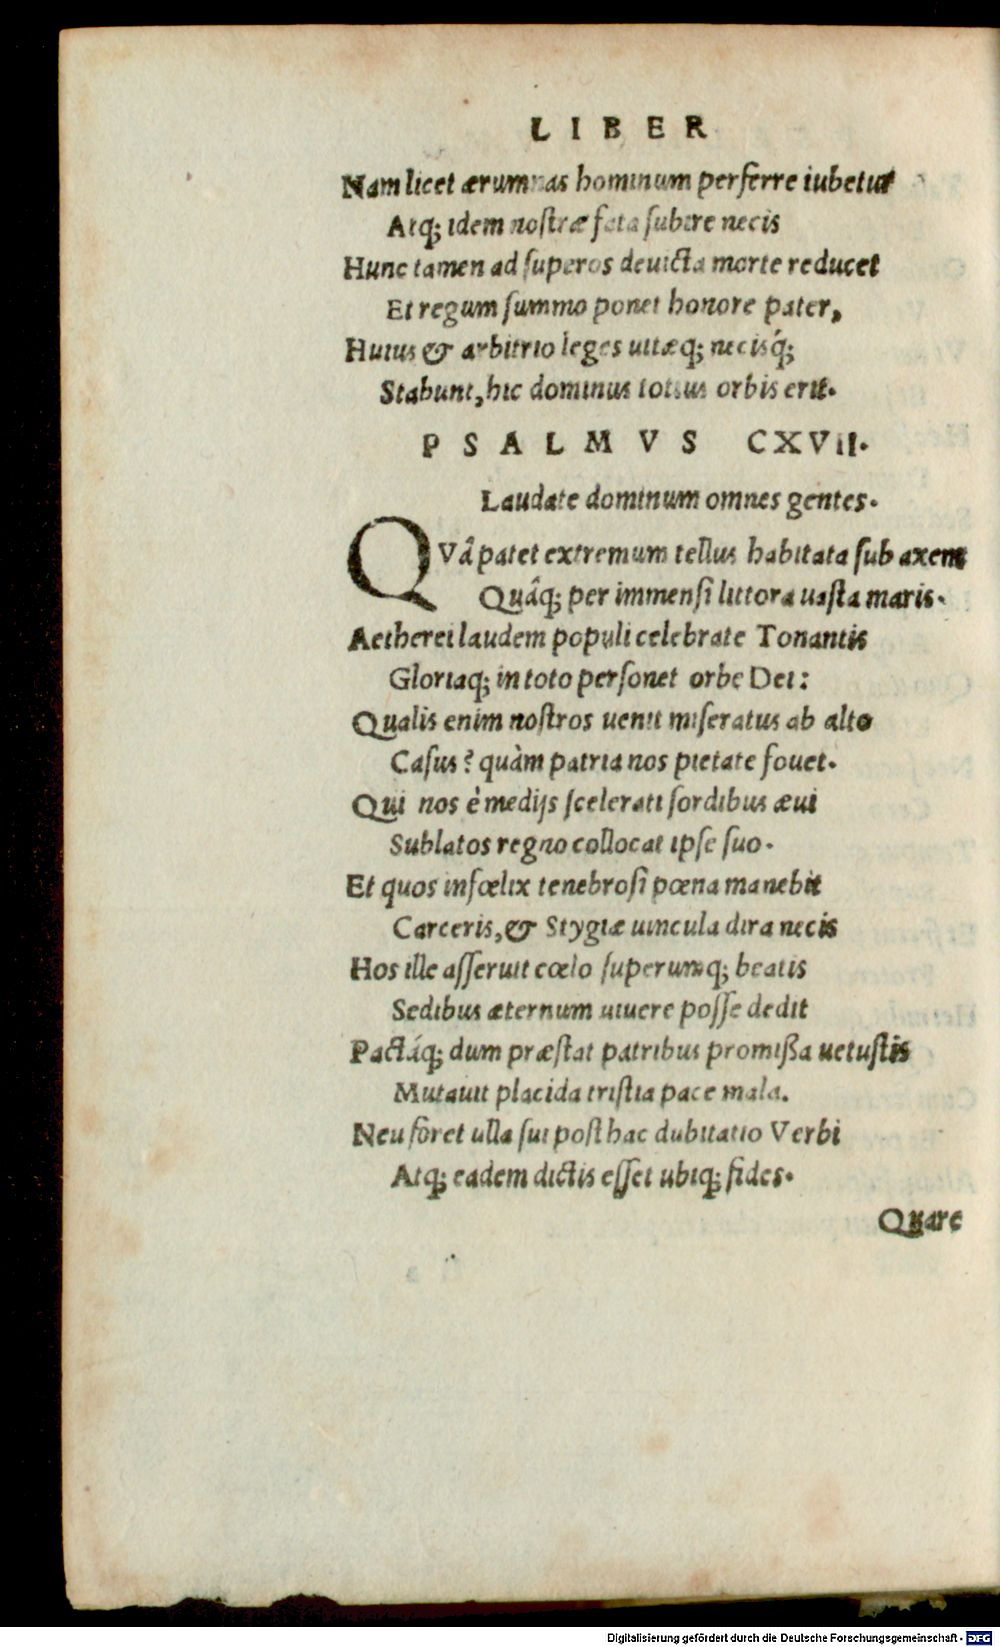 LIBER
Nam licet ærumnas hominum perferre iubetur
Atq; idem nostræ fata subire necis
Hunc tamen ad superos deuicta morte reducet
Et regum summo ponet honore pater,
Huius & arbitrio leges uitæq; necisq́;
Stabunt, hic dominus totius orbis erit.
PSALMVS CXVII.
Laudate dominum omnes gentes.
QVâ patet extremum tellus habitata sub axem
Quâq; per immensi littora uasta maris.
Aetherei laudem populi celebrate Tonantis
Gloriaq; in toto personet orbe Dei:
Qualis enim nostros uenit miseratus ab alto
Casus? quàm patria nos pietate fouet.
Qui nos è medijs scelerati sordibus æui
Sublatos regno collocat ipse suo.
Et quos infœlix tenebrosi pœna manebit
Carceris, & Stygiæ uincula dira necis
Hos ille asseruit cœlo superumq; beatis
Sedibus æternum uiuere posse dedit
Pactáq; dum præstat patribus promißa uetustis
Mutauit placida tristia pace mala.
Neu foret ulla sui posthac dubitatio Verbi
Atq; eadem dictis esset ubiq; fides.
Quare
Digitalisierung gefördert durch die Deutsche Forschungsgemeinschaft - DFG